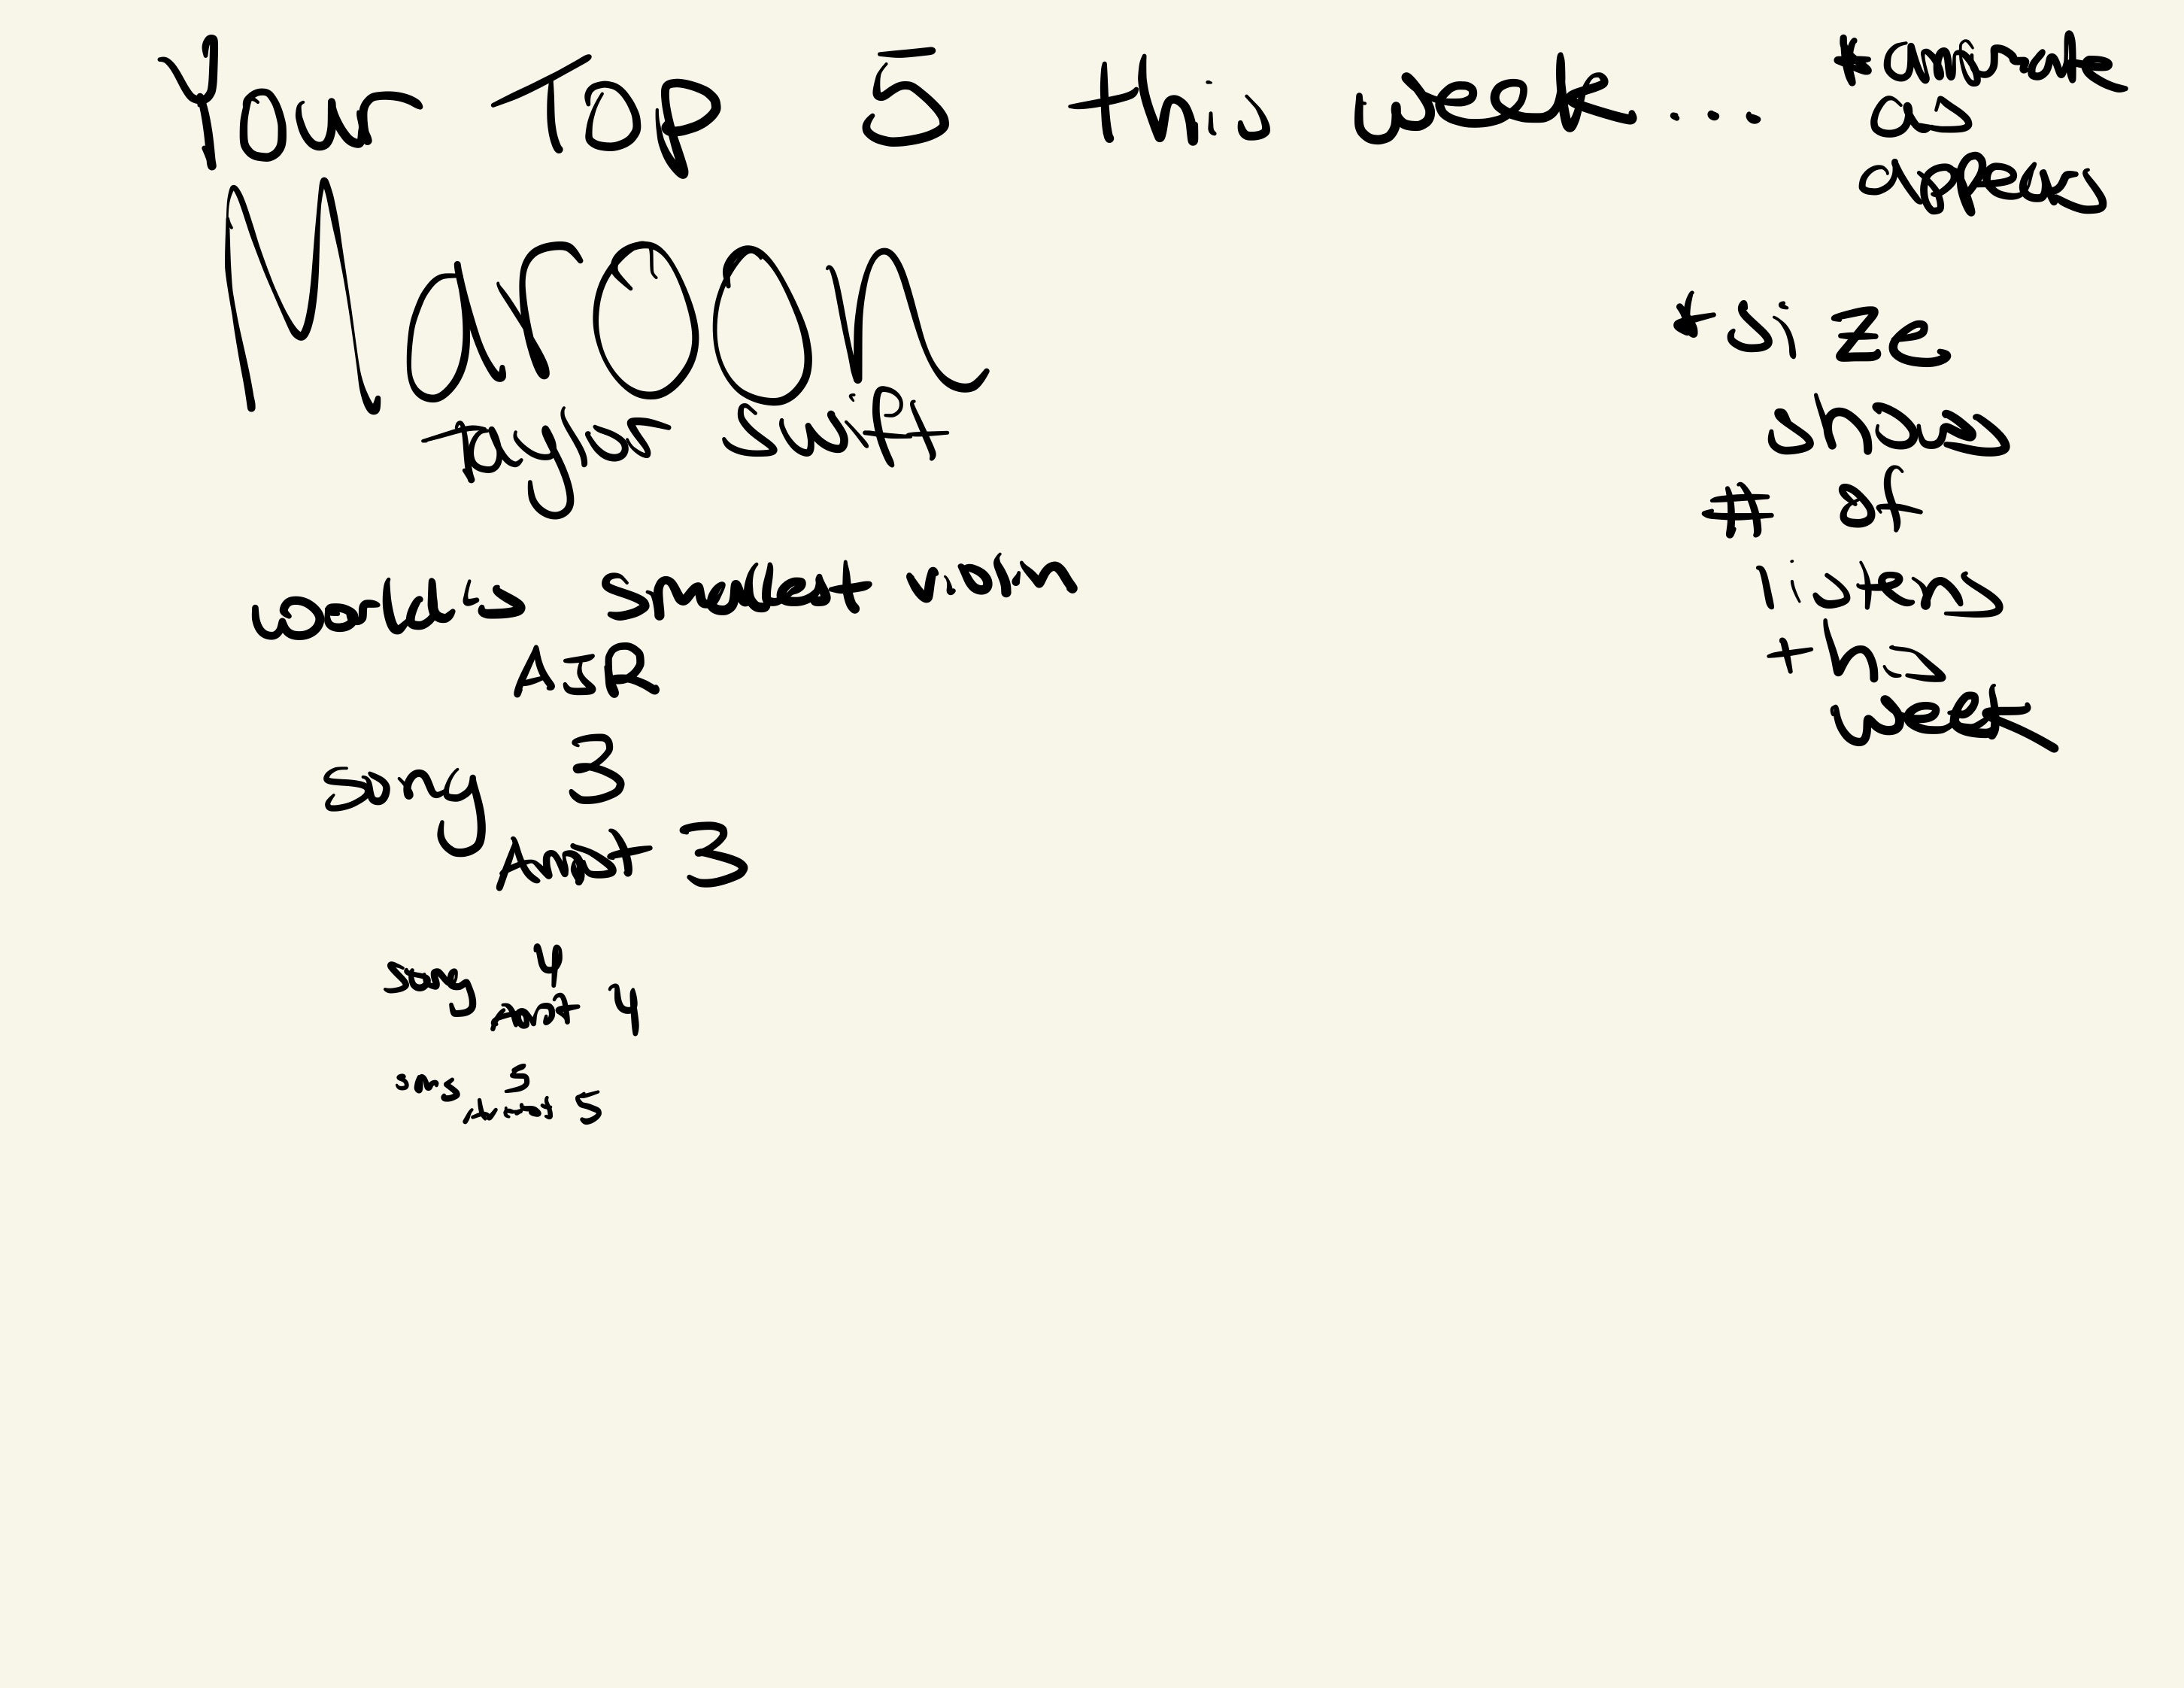 Your Top 5 this week ...
Maroon
Taylor Swift
World's Smallest Violin
AJR
Song 3
Artist 3
Song 4
Artist 4
Song 5
Artist 5
* animate
as
appears
* size
shows
# of
listens
this
week